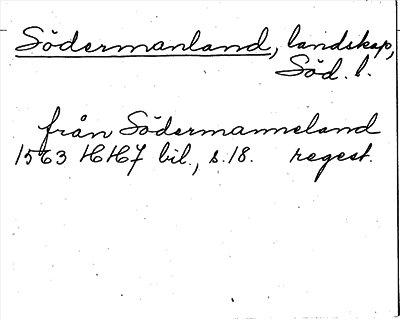 Södermanland, landskap,
Söd. l.
från Södermanneland
1563 HH7 bil., s. 18. regest.